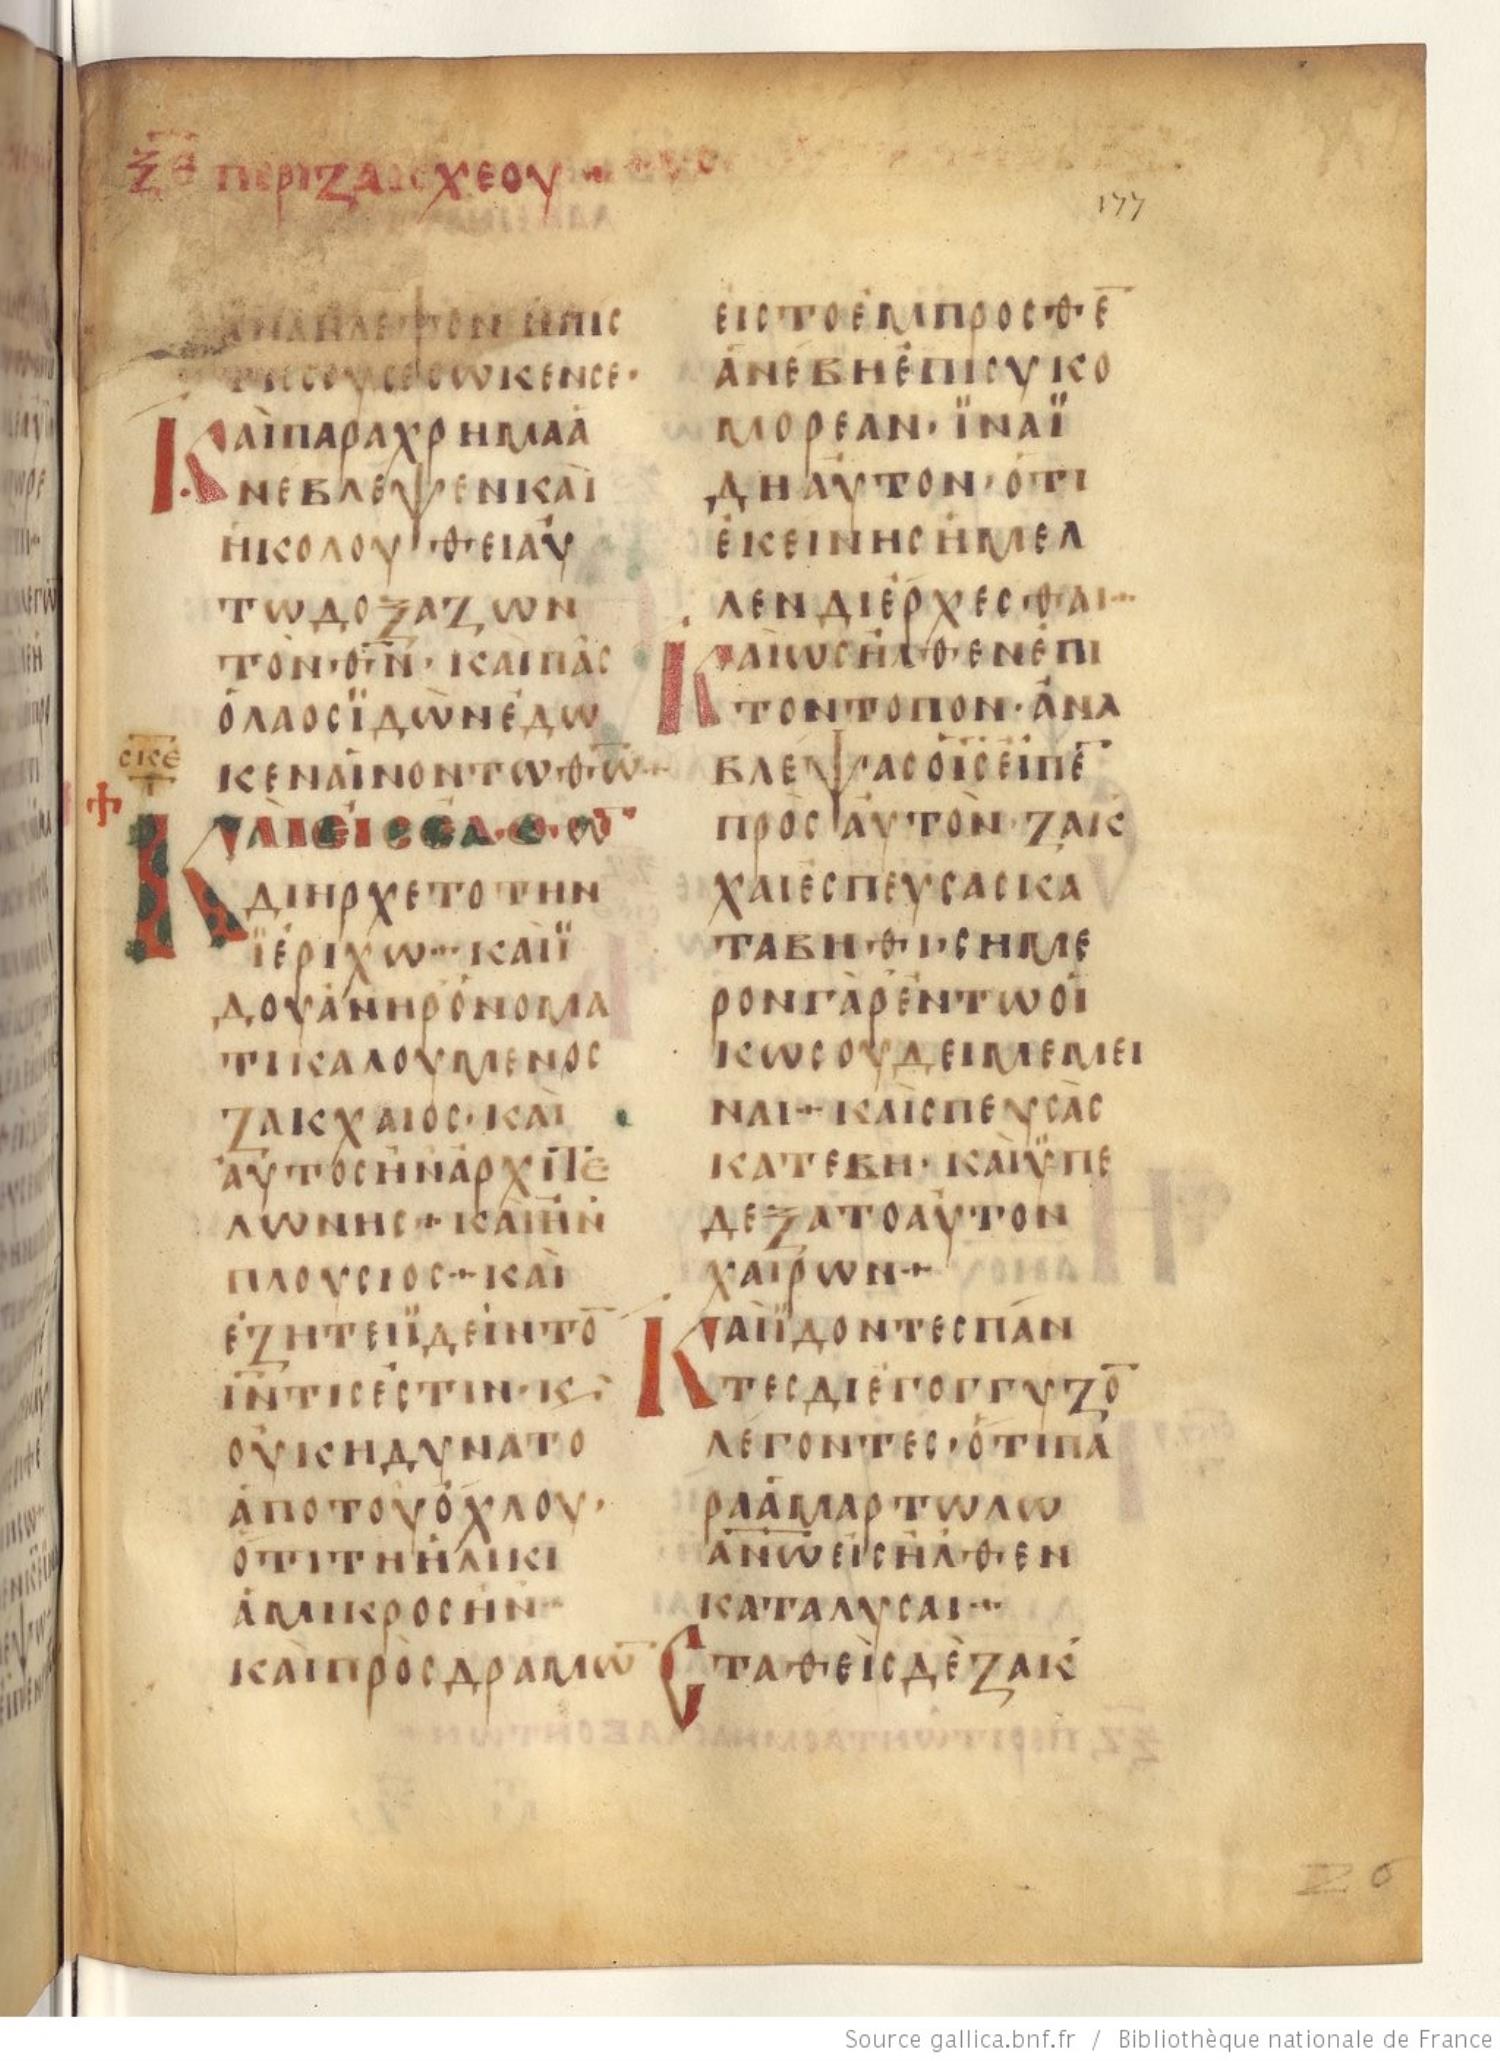 ξε περιζακχεου
177
αναβλεψον ηπισ
τισσουσεσωκενσε·
Καὶπαραχρημαἀ
νεβλεψενκαὶ
ἠκολουθειαὐ
τωδοξαζων
τὸνθ̅ν̅· καιπᾶς
ὁλαοσϊδὼνἐδω
κεναἶνοντωθ̅ω̅
σκε
Καὶεισελθω̅
διηρχετοτην
ϊεριχω· καὶϊ
δουἀνηρὀνομα
τικαλουμενος
ζακχαιος· καὶ
αὐτοσἠνἀρχιτε
λωνης· καὶἠν
πλουσιος· καὶ
ἐζητειϊδεῖντο̅
ι̅ν̅τισἐστιν· κ̀
οὐκηδυνατο
ἀποτουὀχλου·
ὁτιτηἡλικι
ἀμικροσἠν
καὶπρὸσδραμω̅
εἰστοἐμπροσθε̅
ἀνέβηἐπισυκο
μορεαν· ϊναϊ
δηαὐτον· ὁτι
ἐκεινησἠμελ
λενδιέρχεσθαι·
Καὶωσἠλθενἐπι
τοντοπον· ἀνα
βλεψασὁι̅σ̅εἶπε̅
πρὸσαὐτὸν· ζακ
χαιέσπευσασκα
ταβηθι· σημε
ρονγὰρἐντωοἰ
κωσουδειμεμει
ναι· καὶσπευσὰς
κατεβη· καὶϋπε
δεξατοαὐτον
χαίρων·
Καὶϊδοντεσπάν
τεσδιέγογγυζο̅
λέγοντες· ὁτιπα
ραἁμαρτωλω
α̅ν̅ω̅εἰσηλθεν
καταλυσαι·
Σταθεὶσδὲζακ
Source gallica.bnf.fr / Bibliothèque nationale de France